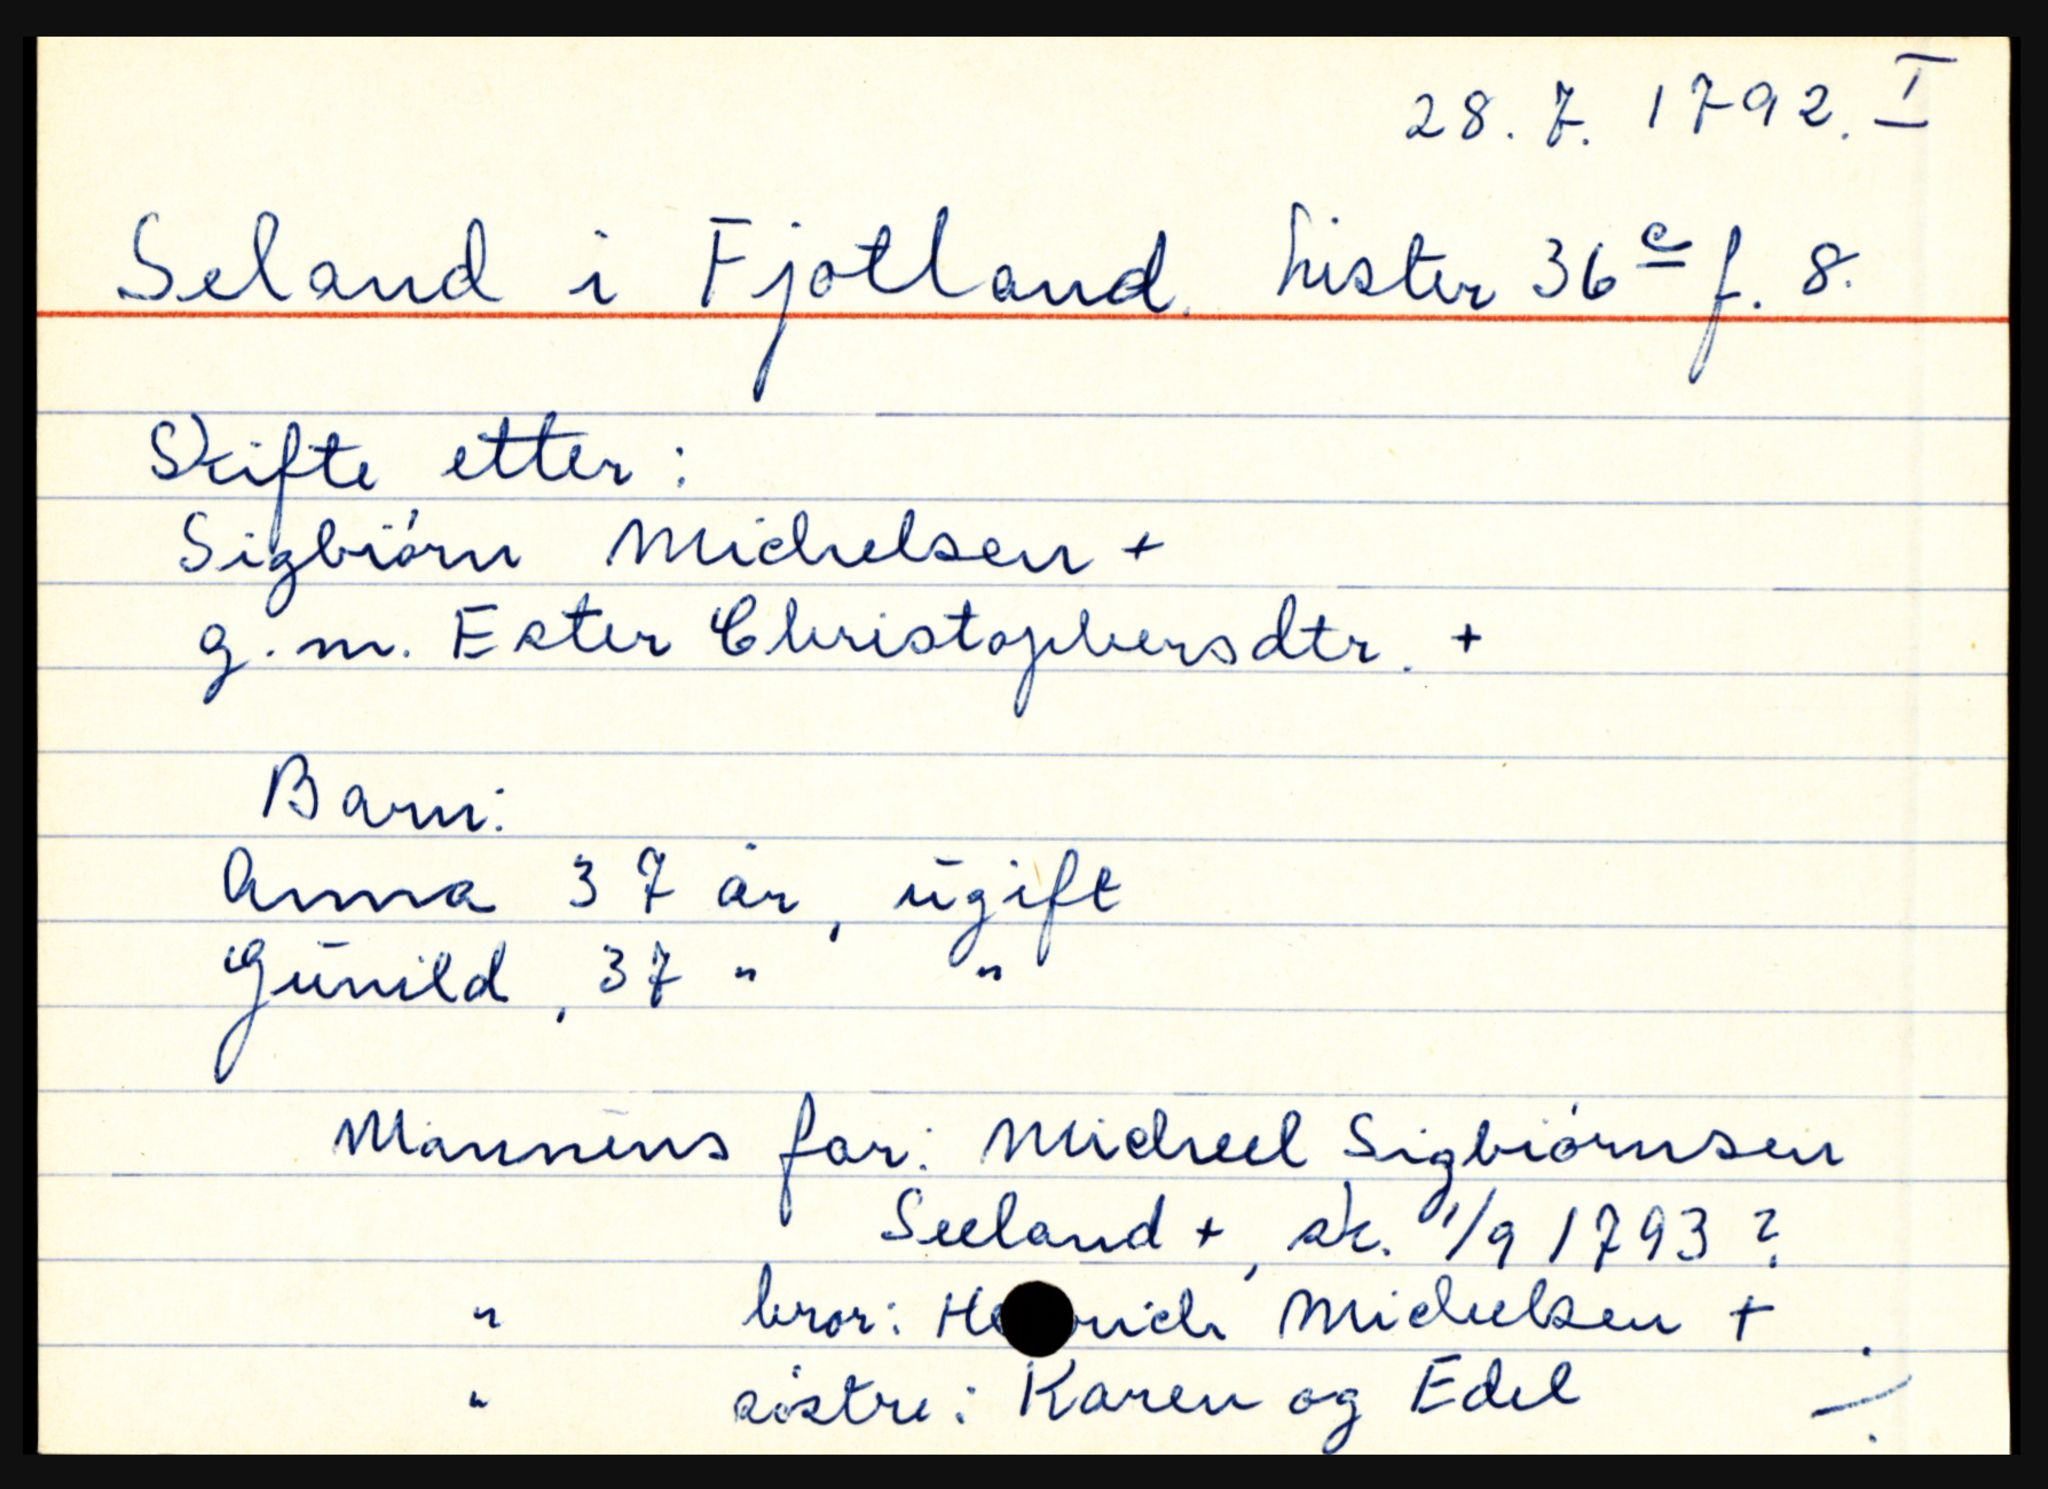 28. 7. 1792. I
Seland i Fjotland. Lister 36c f. 8.
Skifte etter:
Sigbiørn Michelsen +
g. m. Ester Christophersdtr. +
Barn:
Anna 37 år, ugift
Gunild, 37 " "
Mannens far: Micheel Sigbiørnsen
Seeland +, sk. 1/9 1793 ?
" bror: Michelsen +
" søstre: Karen og Edel